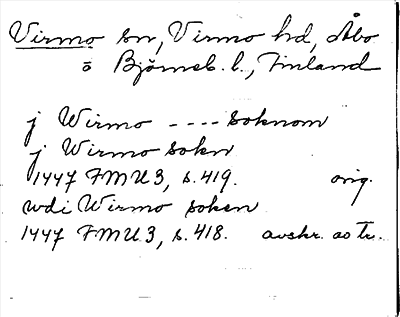 Virmo sn, Virmo hd, Åbo
o Björneb. l., Finland
j Wirmo ---- soknom
j Wirmo sokn
1447 FMU 3, s. 419. orig.
wdi Wirmo soken
1447 FMU 3, s. 418. avskr. ao tr.